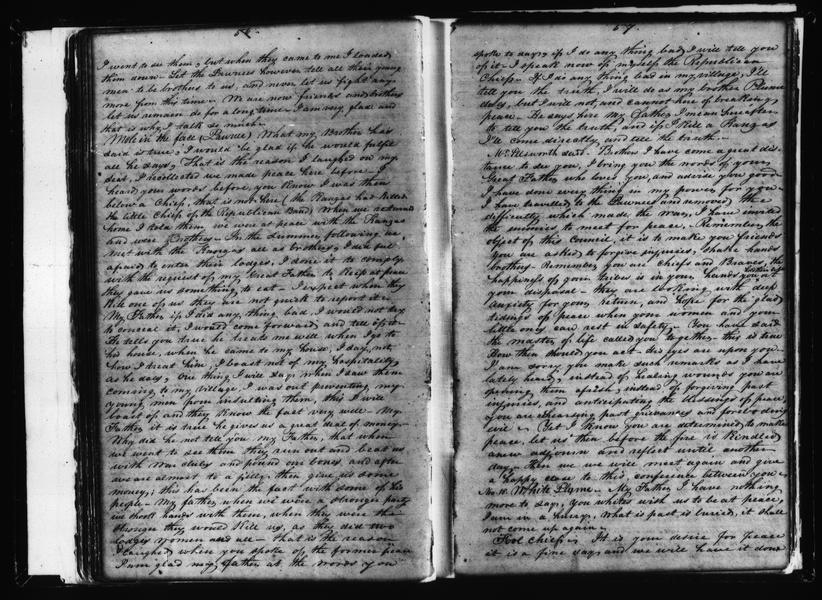 I went to see them, but when they came to me I loaded
them down. Let the Pawnees however tell all their young
men to be brothers to us, and never let us fight any
more from this time. We are now friends and brothers
let us remain so for a long time. I am very glad and
that is why I talk so much.
Mole in the face (Pawnee) What my Brother has
said is true; I would be glad if he would fulfil
all he says, That is the reason I laughed on my
seat, I recollected we made peace here before. I
heard your words before, you know I was then
below a Chief, that is not here (the Kanzas had killed
the little Chief of the Republican Band) When we returned
home I told them we were at peace with the Kanzas
and were Brothers. In the summer following we
met with the Kanzas all as brothers, I was not
afraid to enter their lodges, I done it to comply
with the request of my Great Father to keep at peace
they gave us something to eat. I expect when they
kill one of us they are not quick to report it.
My Father if I did any thing bad, I would not try
to conceal it, I would come forward and tell of it.
He tells you true he treats me well when I go to
his house, when he came to my house, I say not
how I treat him, I boast not of my hospitality
as he does, One thing I will say when I saw them
coming to my village I was out preventing my
young men from insulting them, this I will
boast of and they know the fact very well. My
Father it is true he gives us a great deal of money.
Why did he not tell you my Father, that when
we went to see them they run out and beat us
with war clubs and pound our bones and after
we are almost to a jelly then give us some
money; this has been the fact with some of his
people. My father when we were a stronger party
we shook hands with them, when they were the
stronger they would kill us, as they did two
lodges women and all. that is the reason
I laughed when you spoke of the former peace
I am glad my father at the words you
57
spoke to day, if I do any thing bad I will tell you
of it. I speak now of myself the Republican
Chief. If I do any thing bad in my village, I'll
tell you the truth, I will do as my brother Pawnee
does, but I will not, and cannot hear of breaking
peace. He says here My Father I mean hereafter
to tell you the truth, and if I kill a Kanzas
I'll come directly and tell the truth.
Mr. Ellsworth said. Brothers I have come a great dis-
tance to see you, I bring you the words of your
Great Father who loves you, and advise you good
I have done every thing in my power for you
I have travelled to the Pawnees and removed the
difficulty which made the War, I have invited
the enemies to meet for peace. Remember, the
object of this Council, it is to make you friends
You are asked to forgive injuries, shake hands
brothers. Remember you are chiefs and Braves, the
happiness of your tribes is in your hands you at
your disposal. they are looking with deep
anxiety for your return, and hope for the glad
tidings of peace when your women and your
little ones can rest in safety. You have said
the master of life called you together. this is true
How then should you act. his eyes are upon you.
I am sorry you make such remarks as I have
lately heard, instead of healing wounds you are
opening them afresh; instead of forgiving past
injuries, and anticipating the blessings of peace,
you are rehearsing past grievances and foreboding
evil. Yet I know you are determined to make
peace, let us then before the fire is kindled
anew adjourn and reflect until another
day, then we will meet again and give
a happy close to this conference between you.
No. 10. White Plume. My Father I have nothing
more to say, you whites wish us to be at peace,
I am in a hurry. What is past is buried, it shall
not come up again.
Fool Chief. It is your desire for peace
it is a fine day and we will have it done